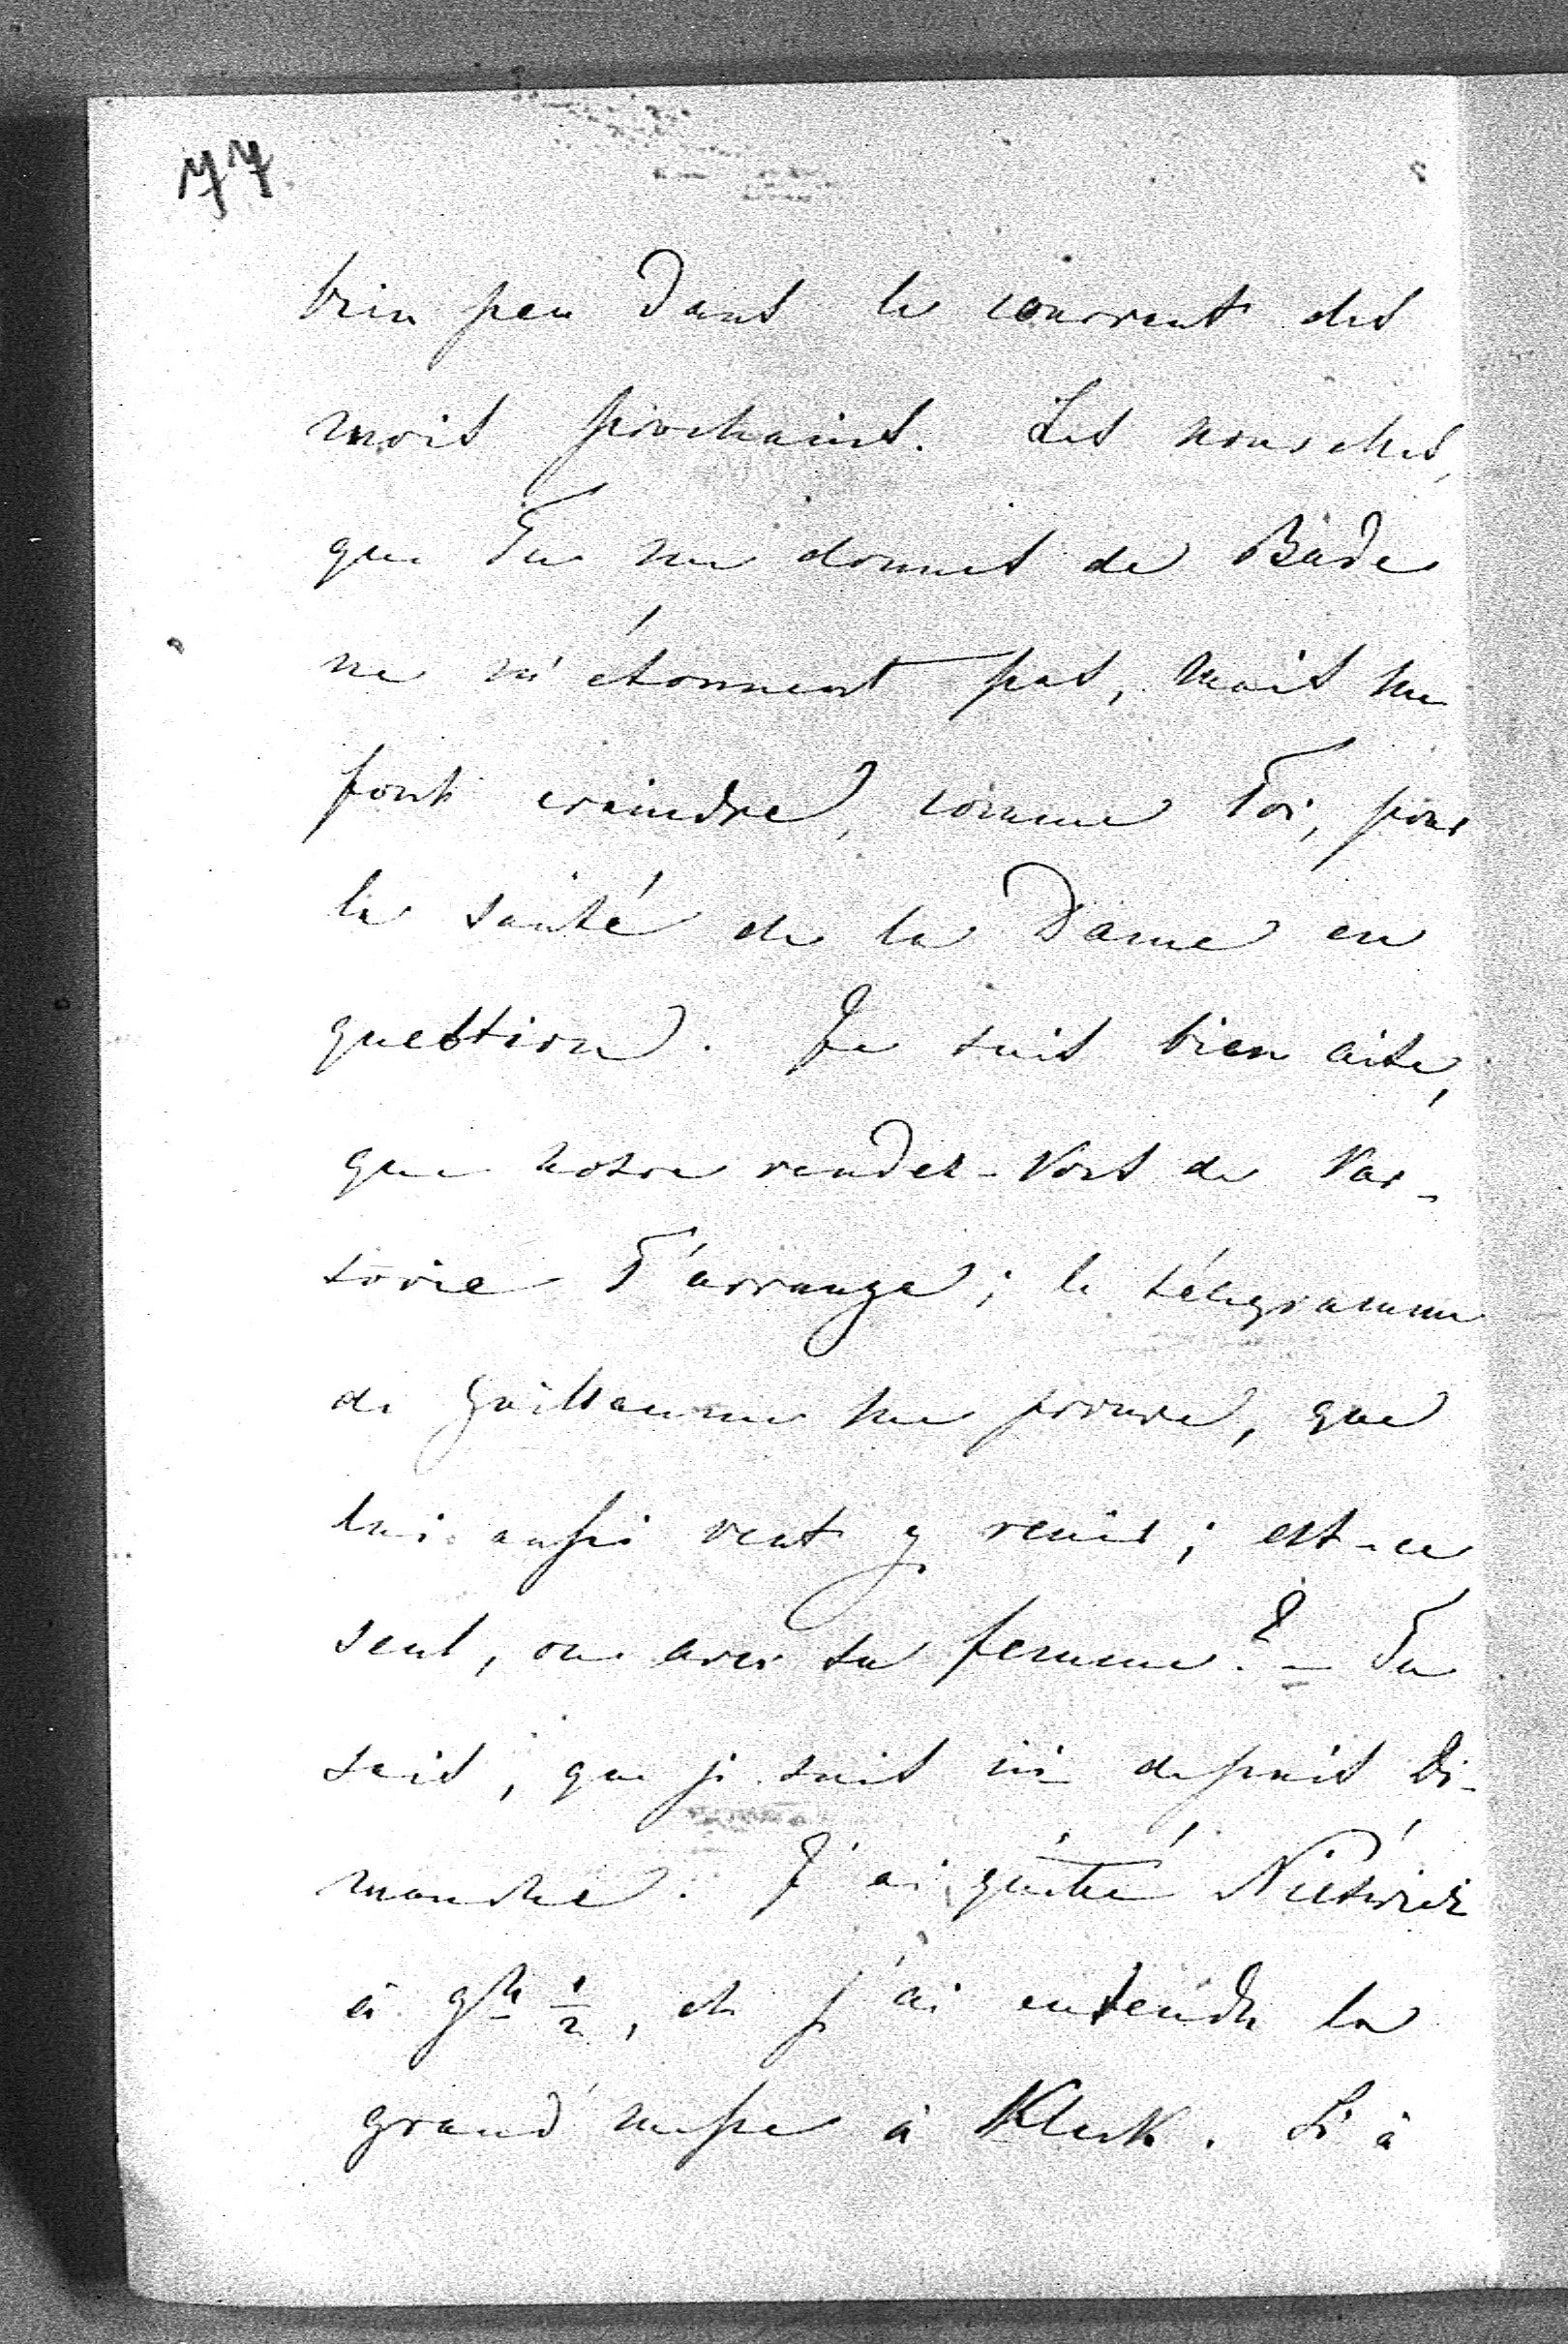 77
bien peu dans le courrent des
mois prochains. Les nouvelles,
que Tu me donnes de Bade
ne m'étonnent pas, mais me
font craindre, comme Toi, pour
la santé de la Dame en
question. Je suis bien aise,
que notre rendez-vous de Var-
sovie T'arrange; le télégramme
de Guillaume me prouve, que
lui aussi veut y venir; est-ce
seul, ou avec sa femme? – Tu
sais, que je suis ici depuis Di-
manche. J'ai quitté Nieśwież
à 9h ½, et j'ai entendu la
grand'messe à Kleck. Là à